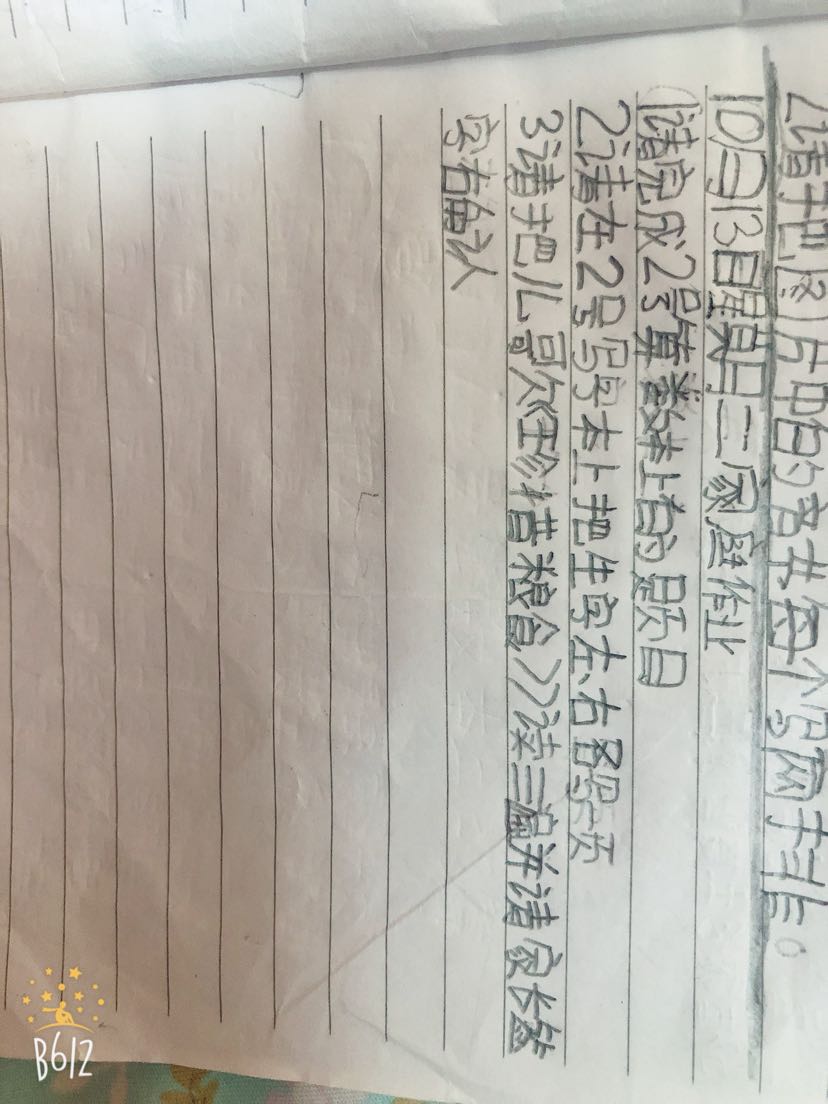 2请把图片中的音共每个写两排。
10月13日星期二家庭作业
1请完成2号算数本上的题目
2请在2号写字本上把生字左、右各写一页
3请把儿哥《珍惜粮食》读三遍并请家长签
字确认
B612